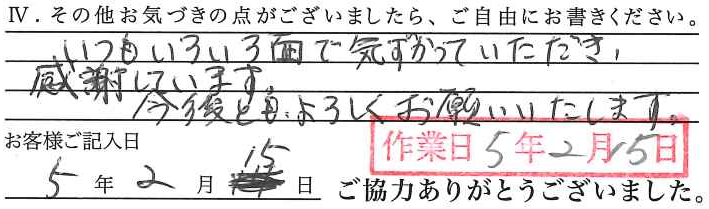 Ⅳ．その他お気づきの点がございましたら、ご自由にお書きください。
いつもいろいろ面で気ずかっていただき、
感謝しています。
今後とも、よろしくお願いいたします。
お客様ご記入日
作業日 5年2月15日
5 年 2 月 15 日 ご協力ありがとうございました。